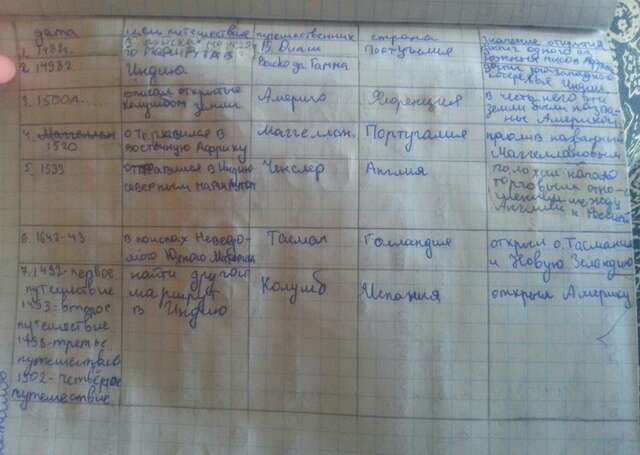 дата
путешественник
страна
Значение открытия
1. 1487г.
В. Диаш
Португалия
2. 14982
Индию
Васко да Гамма
3. 1500г.
описал открытые
Колумбом земли
Америго
Флоренция
в честь него эти
земли были назва-
ны Америкой
4. Маггеллан
1520
отправился в
восточную Африку
Маггеллан.
Португалия
пролив названный
Маггеллановым
5. 1533
отправился в Индию
северным маршрутом
Ченслер
Англия
положил начало
торговым отно-
шениям между
Англией и Россией
6. 1642-43
в поисках Неведо-
мого Южного Материка
Тасман
Голландия
открыл о. Тасмания
и Новую Зеландию
7. 1492- первое
путешествие
1493- второе
путешествие
1498- третье
путешествие
1502- четвёртое
путешествие
найти другой
маршрут
в Индию
Колумб
Испания
открыл Америку